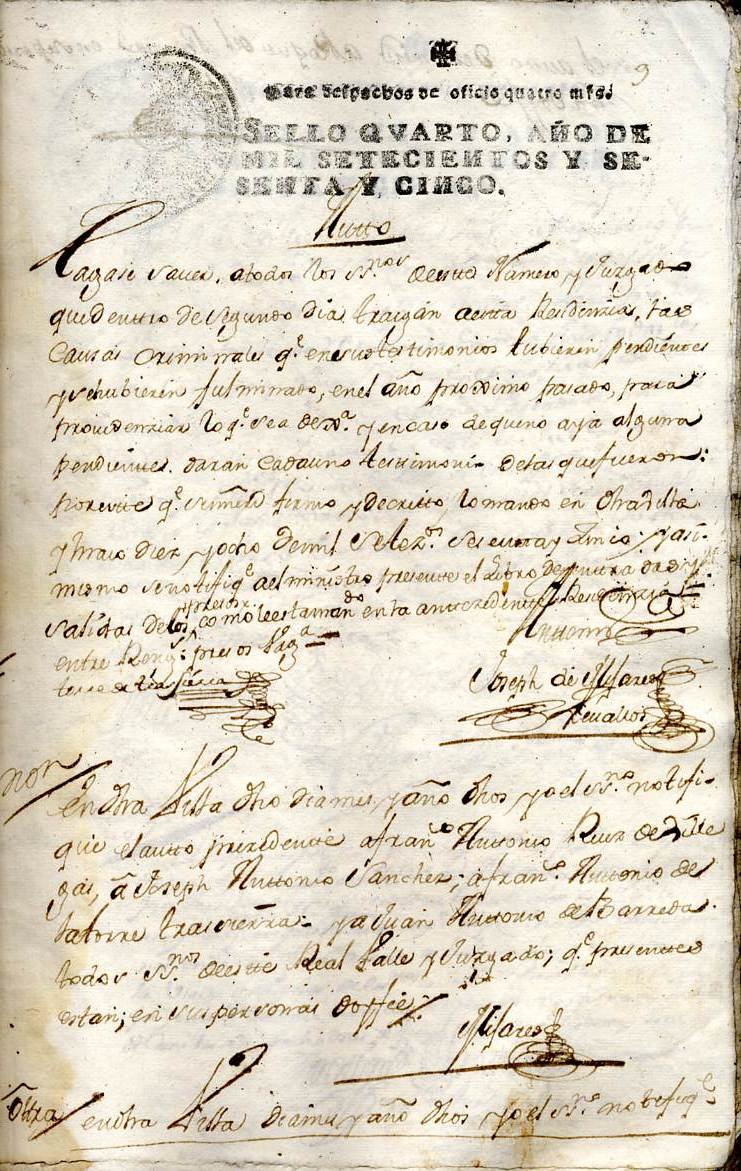 9
Para despachos de oficio quatro mrs.
SELLO QVARTO, AÑO DE
MIL SETECIENTOS Y SE-
SENTA Y CINCO.
Autto
Hagase saver, a todos los ss.nos de este Numero, y Juzgado
que dentro de segundo dia traigan a esta Residenzia, las
Causas Criminales q.e en su testimonios hubieren pendientes
y se hubieren fulminado, en el año proximo pasado, para
providenziar lo q.e sea de y en caso de que no aya alguna
pendientes, daran cada uno testimonio de las que fueron:
por este q.e su mrd firmo y decretto, lo mando en dha Villa
y Maio diez y ocho de mil setez.s sesenta y Cinco: y asi
mismo se notifiq.e ael ministro presente el Libro de entradas y
salidas de los presos, como le esta mando en la antecedente Residenzia
entre Reng.s presos
Antonio
Joseph de Mijares
Zevallos
non
En dha Villa dho dia mes y año dhos yo el ss.no notifi-
que el autto prezedente a fran.co Anttonio Ruiz de Ville
gas, a Joseph Anttonio Sanchez; a fran.co Anttonio de
la torre trasvierra y a Juan Anttonio de la Barreda
todos ss.nos de este Real Valle y Juzgado; q.e presentes
estan; en sus personas doy fee:
Mijares
Ottra
en dha Villa dia mes y año dhos yo el ss.no notifiq.e